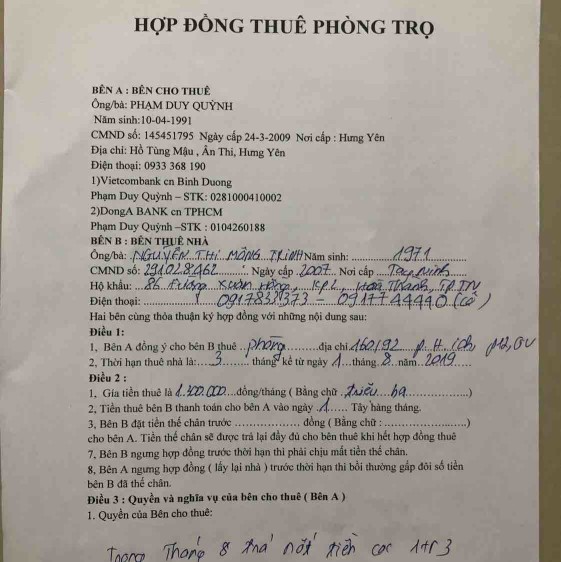 HỢP ĐỒNG THUÊ PHÒNG TRỌ
BÊN A : BÊN CHO THUÊ
Ông/bà: PHẠM DUY QUỲNH
Năm sinh:10-04-1991
CMND số: 145451795 Ngày cấp 24-3-2009 Nơi cấp : Hưng Yên
Địa chỉ: Hồ Tùng Mậu , Ân Thi, Hưng Yên
Điện thoại: 0933 368 190
1)Vietcombank cn Binh Duong
Phạm Duy Quỳnh – STK: 0281000410002
2)DongA BANK cn TPHCM
Phạm Duy Quỳnh –STK : 0104260188
BÊN B : BÊN THUÊ NHÀ
Ông/bà: NGUYỄN THỊ MỘNG TRINH Năm sinh: 1971
CMND số: 291028462 Ngày cấp 2007 Nơi cấp Tây Ninh
Hộ khẩu: 86 Trương Hiệp Thành, TP.TN
Điện thoại: 0917838373 – 0917744440 (Cô)
Hai bên cùng thỏa thuận ký hợp đồng với những nội dung sau:
Điều 1:
1, Bên A đồng ý cho bên B thuê phòng địa chỉ 160/92 P. H. Ích, P12, GV
2, Thời hạn thuê nhà là: 3 tháng kể từ ngày 1 tháng 8 năm 2019
Điều 2 :
1, Gia tiền thuê là 1.300.000 đồng/tháng ( Bằng chữ triệu ba )
2, Tiền thuê bên B thanh toán cho bên A vào ngày 1 Tây hàng tháng.
3, Bên B đặt tiền thế chân trước .................. đồng ( Bằng chữ : ......................)
cho bên A. Tiền thế chân sẽ được trả lại đầy đủ cho bên thuê khi hết hợp đồng thuê
7, Bên B ngưng hợp đồng trước thời hạn thì phải chịu mất tiền thế chân.
8, Bên A ngưng hợp đồng ( lấy lại nhà ) trước thời hạn thì bồi thường gấp đôi số tiền
bên B đã thế chân.
Điều 3 : Quyền và nghĩa vụ của bên cho thuê ( Bên A )
1. Quyền của Bên cho thuê:
Trong Tháng 8 trả nốt tiền cọc 1tr3